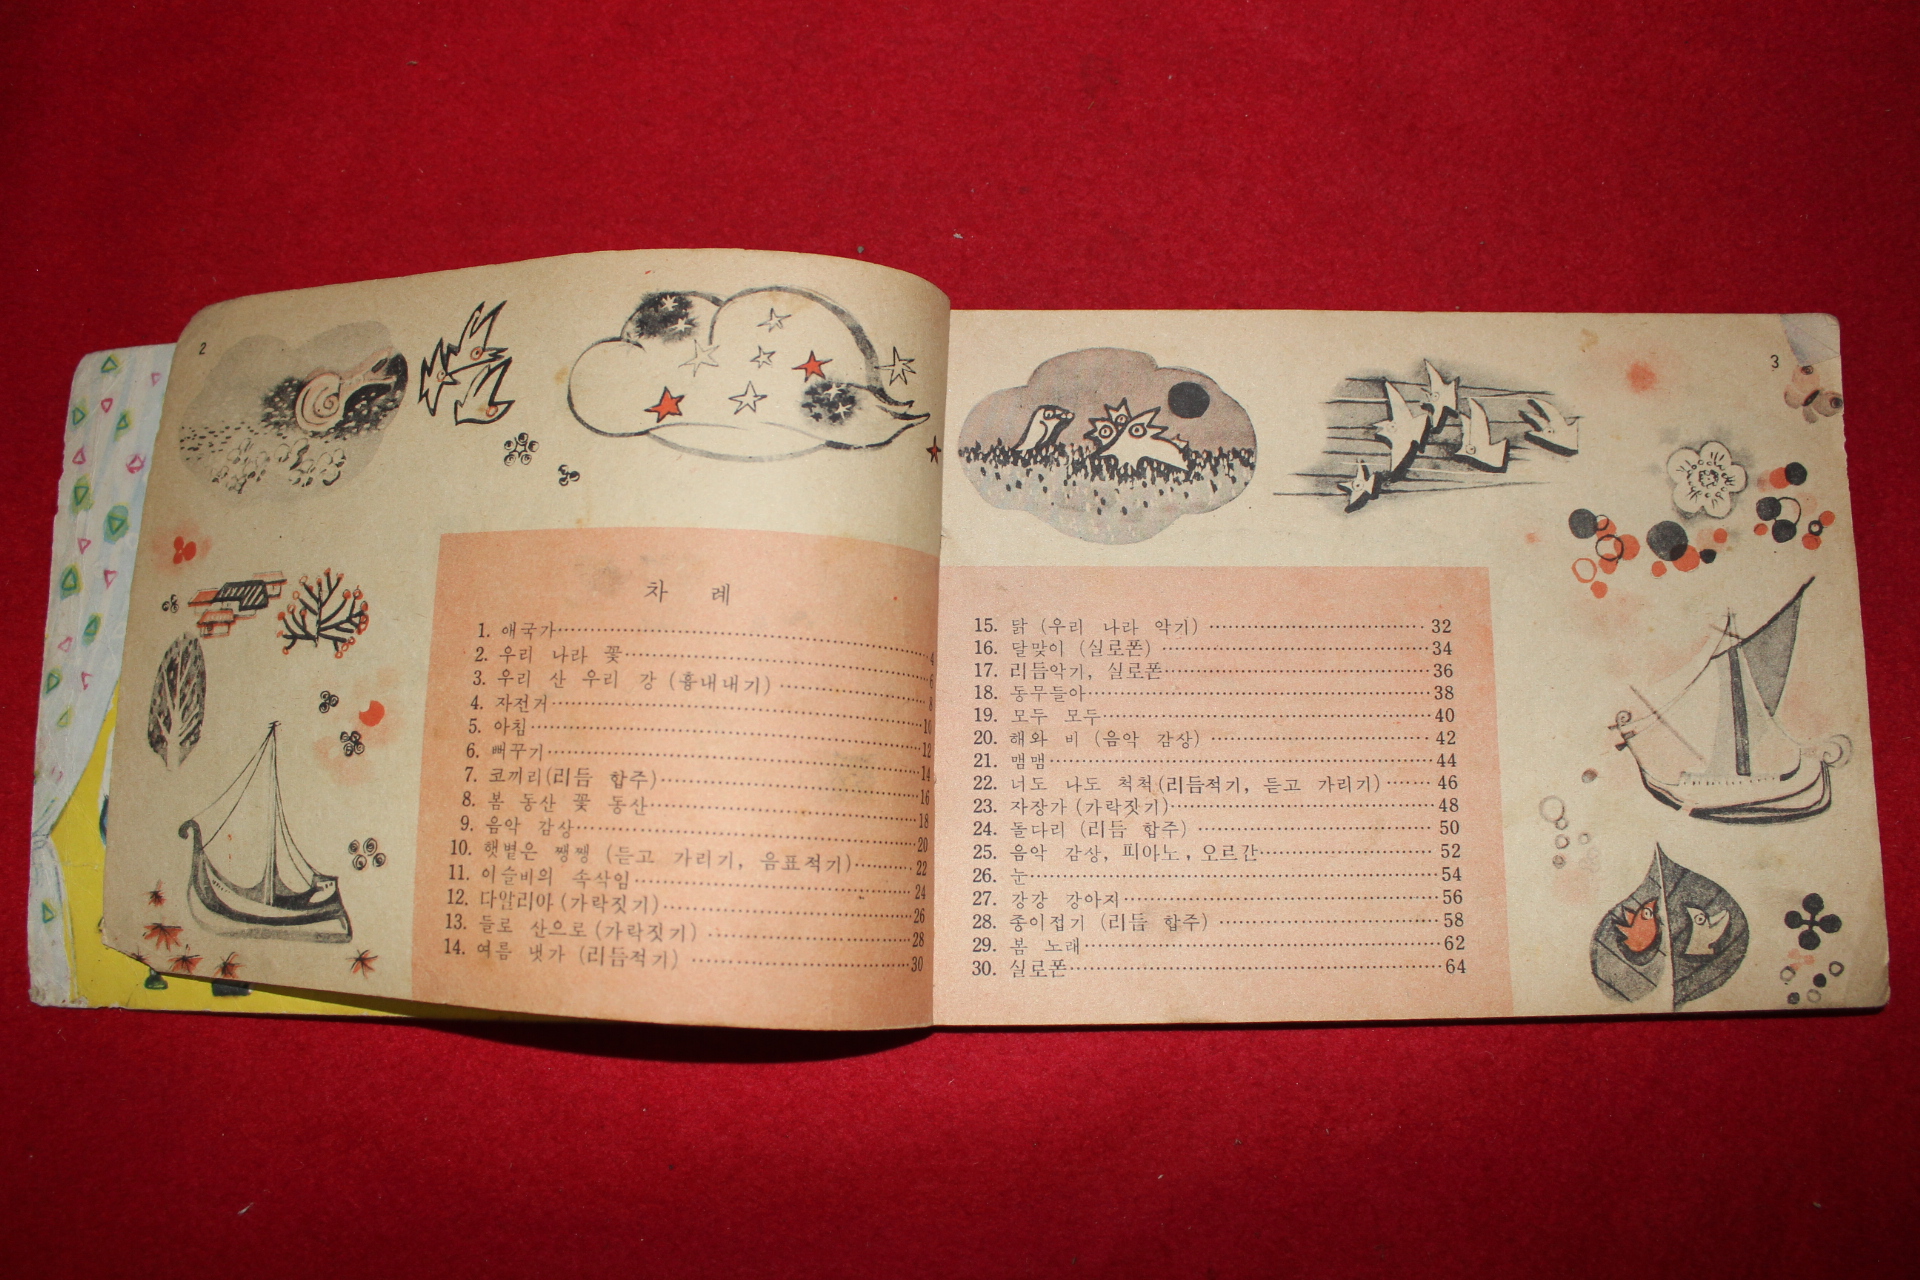 2
차 례
1. 애국가 4
2. 우리 나라 꽃 6
3. 우리 산 우리 강 (흉내내기) 8
4. 자전거 10
5. 아침 12
6. 뻐꾸기 14
7. 코끼리(리듬 합주) 16
8. 봄 동산 꽃 동산 18
9. 음악 감상 20
10. 햇볕은 쨍쨍 (듣고 가리기, 음표적기) 22
11. 이슬비의 속삭임 24
12. 다알리아 (가락짓기) 26
13. 들로 산으로 (가락짓기) 28
14. 여름 냇가 (리듬적기) 30
3
15. 닭 (우리 나라 악기) 32
16. 달맞이 (실로폰) 34
17. 리듬악기, 실로폰 36
18. 동무들아 38
19. 모두 모두 40
20. 해와 비 (음악 감상) 42
21. 맴맴 44
22. 너도 나도 척척 (리듬적기, 듣고 가리기) 46
23. 자장가 (가락짓기) 48
24. 돌다리 (리듬 합주) 50
25. 음악 감상, 피아노, 오르간 52
26. 눈 54
27. 강강 강아지 56
28. 종이접기 (리듬 합주) 58
29. 봄 노래 62
30. 실로폰 64